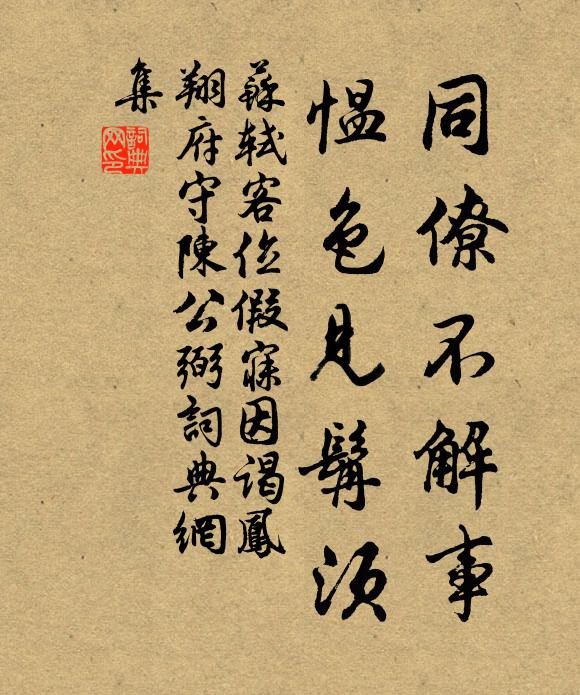 同僚不解事
愠色見髯須
蘇軾客位假寐因謁鳳
翔府守陳公弼詞典網
集
詞典网印